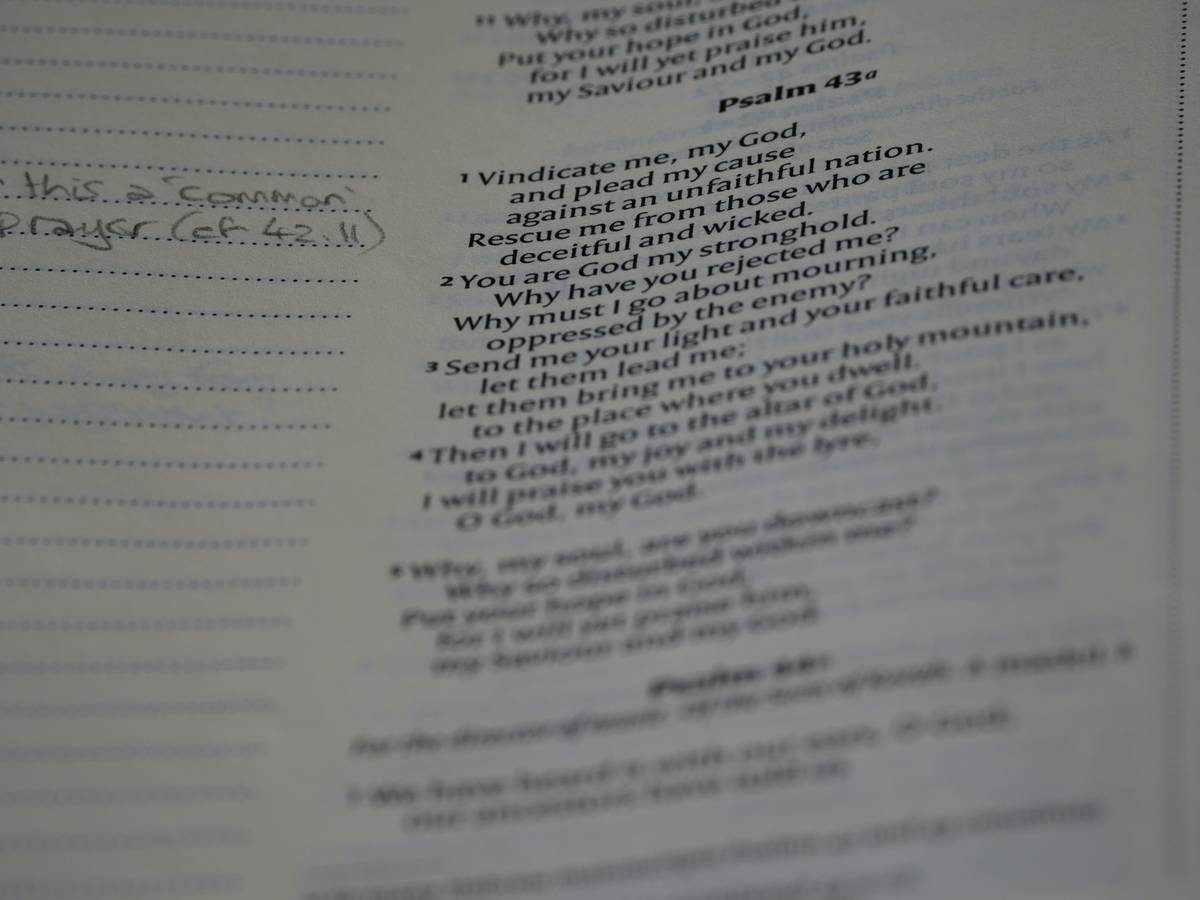 this a 'common'
prayer (cf 42.11)
11 Why, my soul,
Why so disturbed
Put your hope in God,
for I will yet praise him,
my Saviour and my God.
Psalm 43a
1 Vindicate me, my God,
and plead my cause
against an unfaithful nation.
Rescue me from those who are
deceitful and wicked.
2 You are God my stronghold.
Why have you rejected me?
Why must I go about mourning,
oppressed by the enemy?
3 Send me your light and your faithful care,
let them lead me;
let them bring me to your holy mountain,
to the place where you dwell.
4 Then I will go to the altar of God,
to God, my joy and my delight.
I will praise you with the lyre,
O God, my God.
5 Why, my soul, are you downcast?
Why so disturbed within me?
Put your hope in God,
for I will yet praise him,
my Saviour and my God.